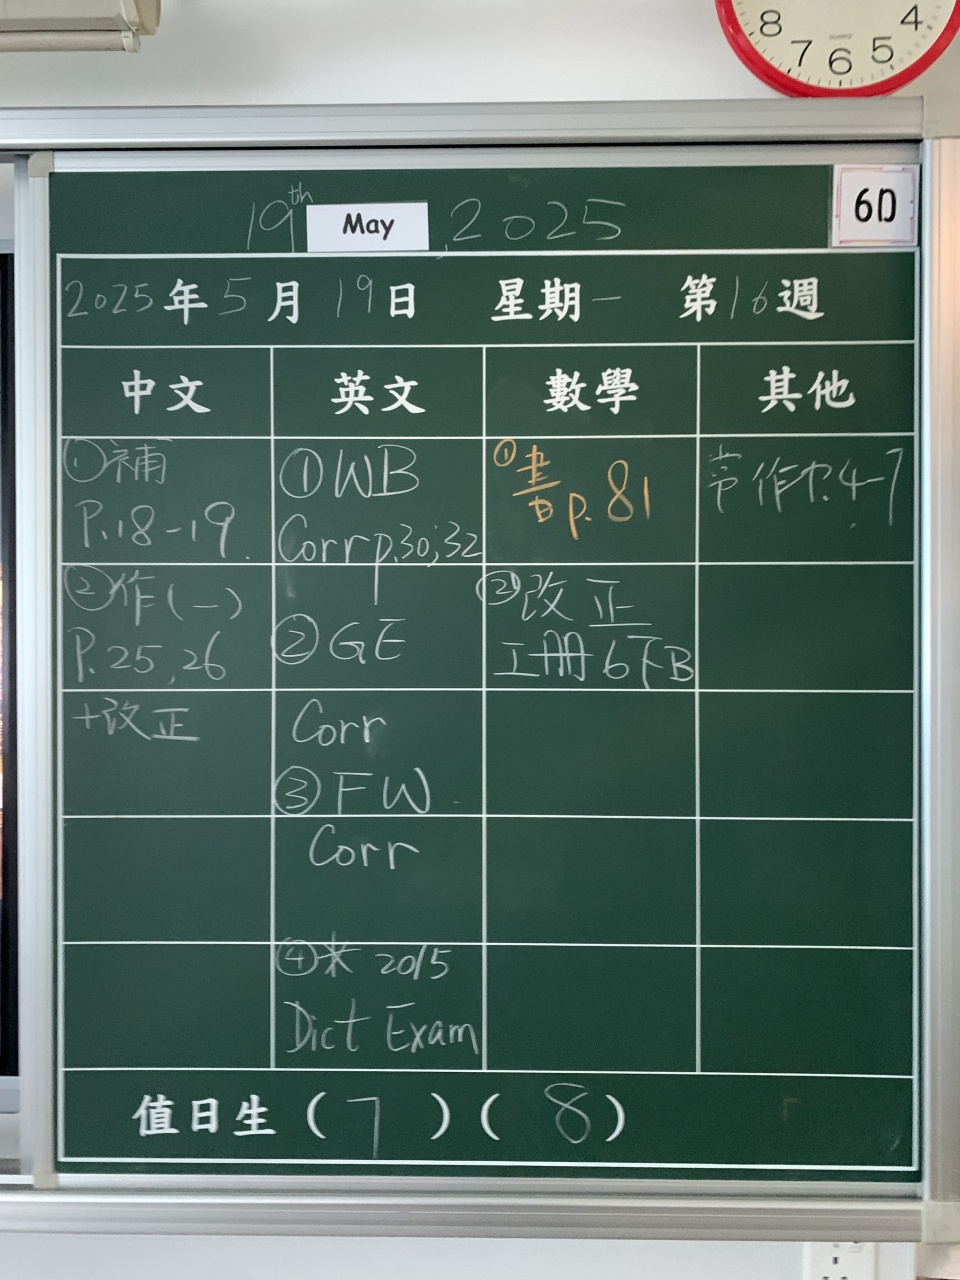 8 7 6 5 4
19th May, 2025
6D
2025年5月19日 星期一 第16週
中文 英文 數學 其他
①補
P.18-19.
②作(一)
P.25,26
+改正
①WB
Corr p.30;32
②GE
Corr
③FW
Corr
④* 20/5
Dict Exam
①書 p.81
②改正
工册6下B
常作P.4-7
值日生(7)(8)